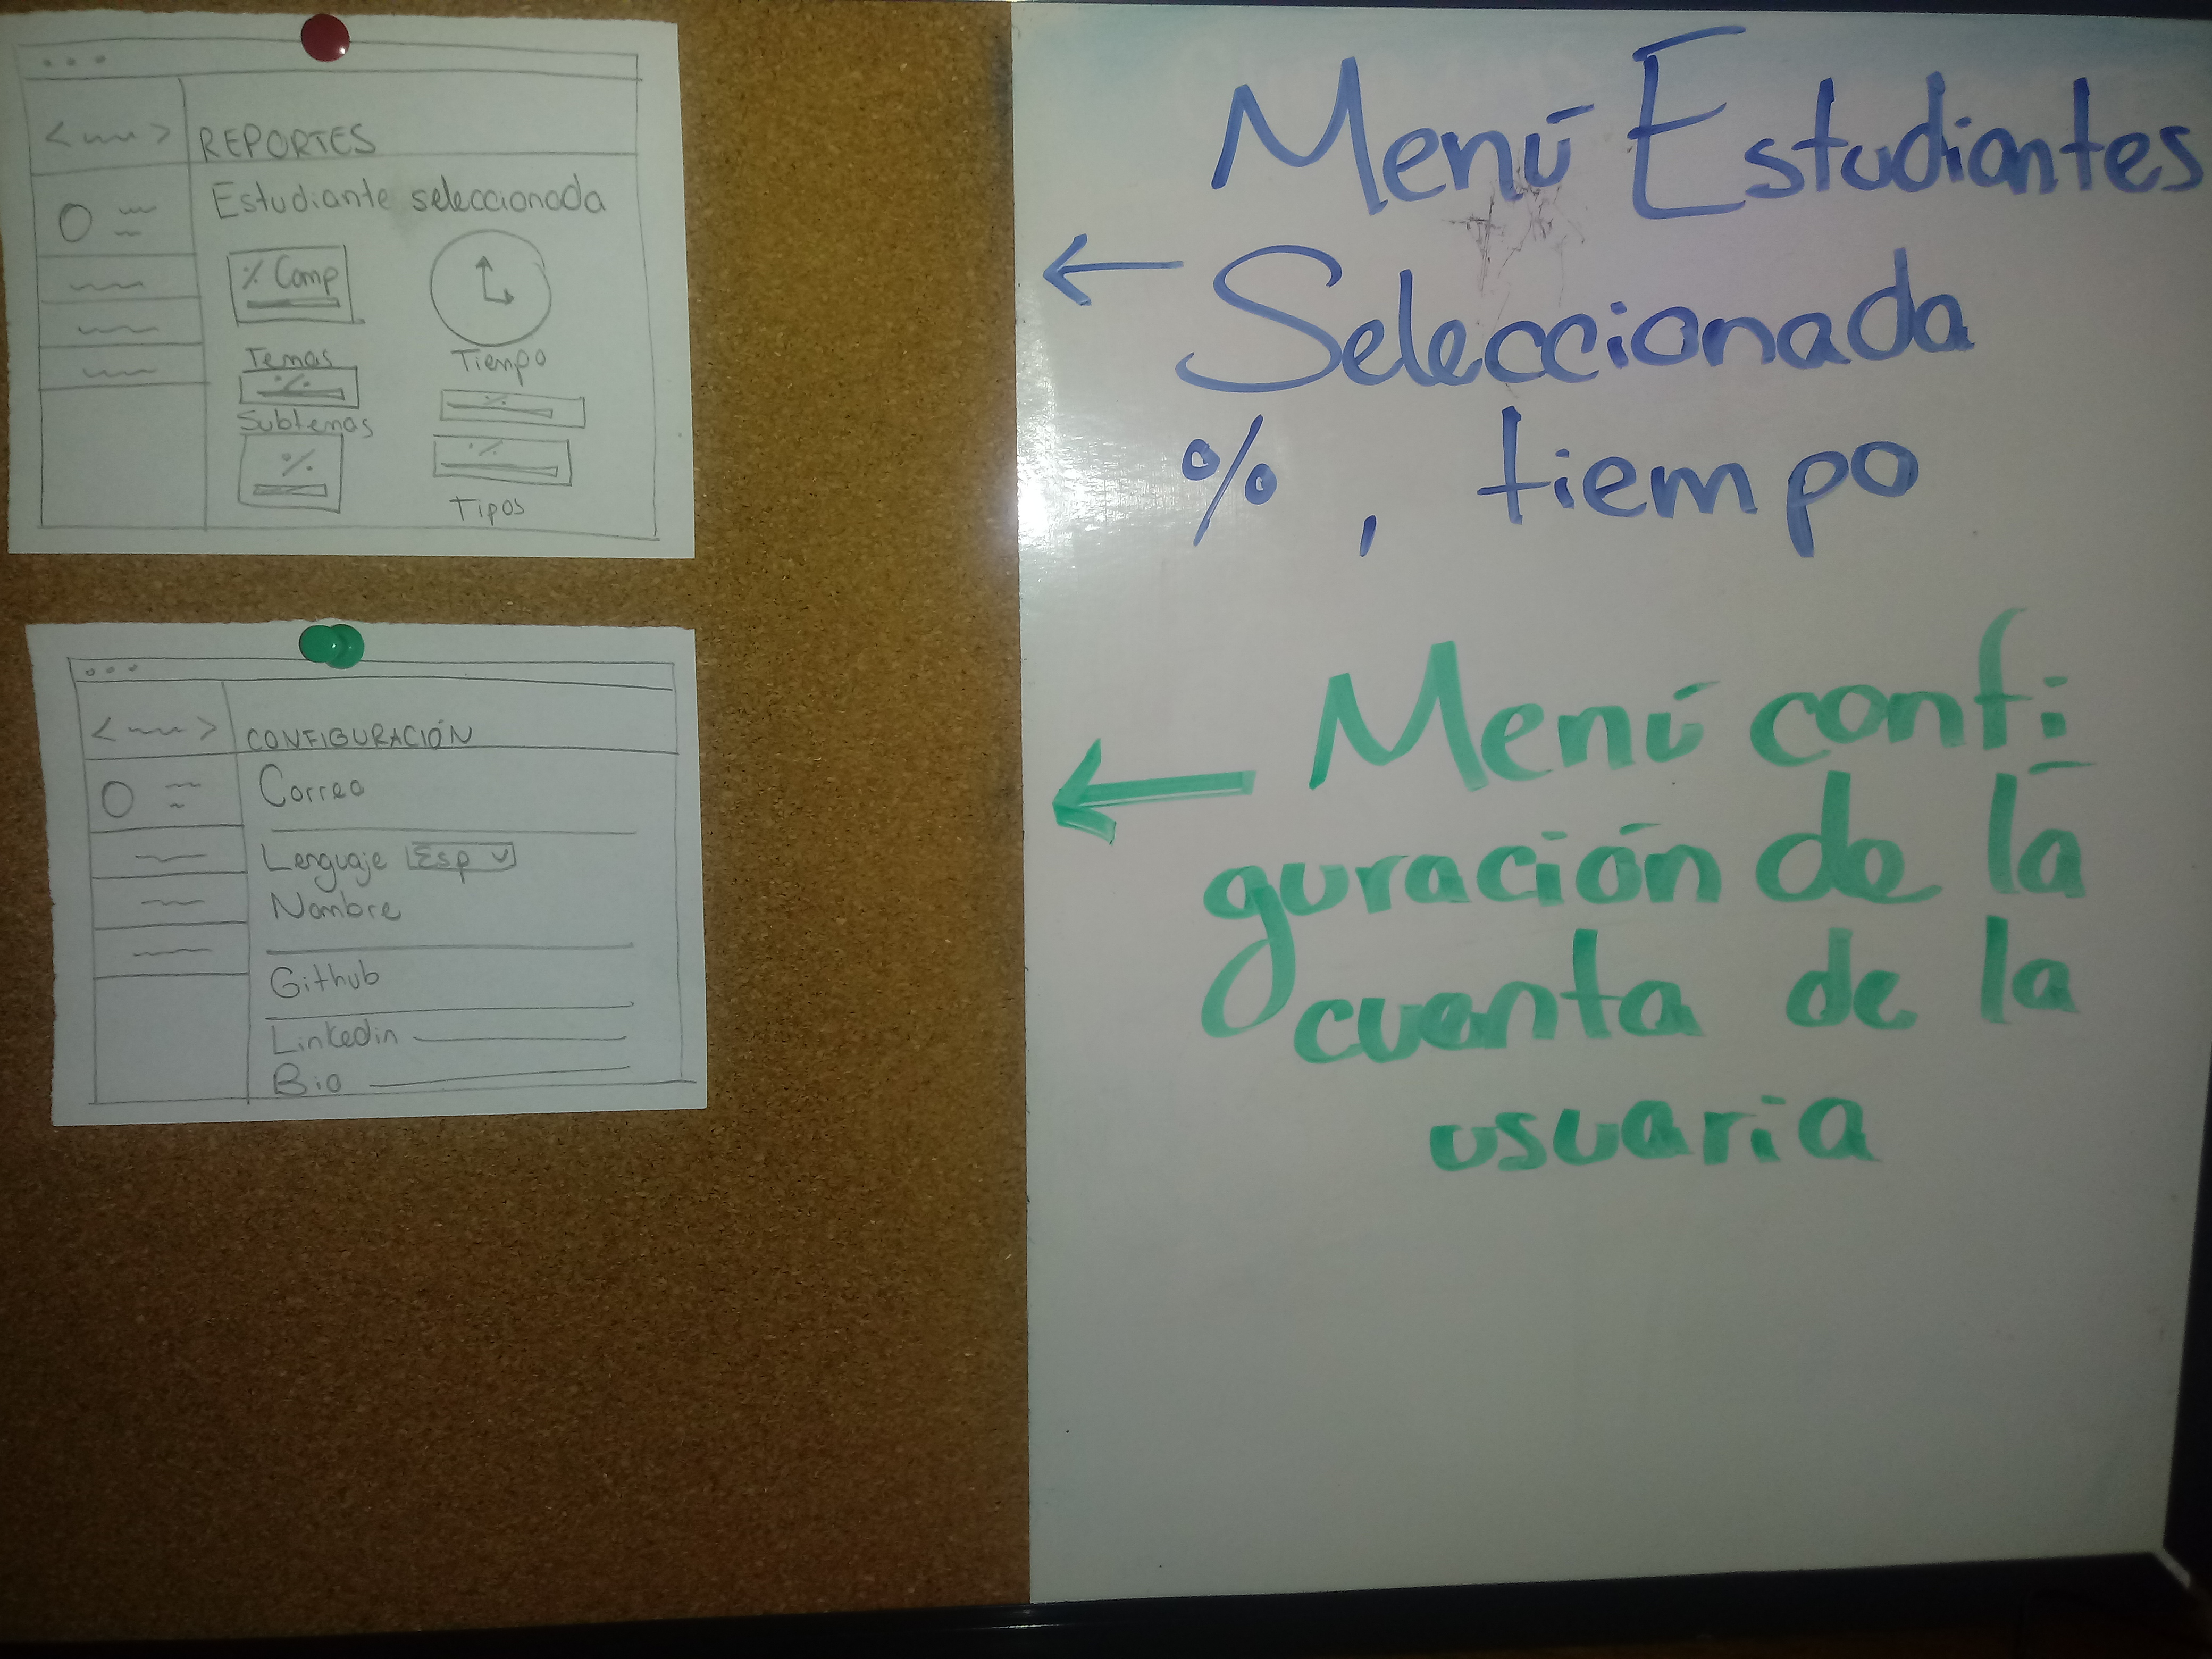 REPORTES
Estudiante seleccionada
% Comp
Temas
%
Subtemas
%
Tiempo
%
%
Tipos
CONFIGURACIÓN
Correo
Lenguaje Esp
Nombre
Github
Linkedin
Bio
Menú Estudiantes
Seleccionada
%, tiempo
Menú confi
guración de la
cuenta de la
usuaria